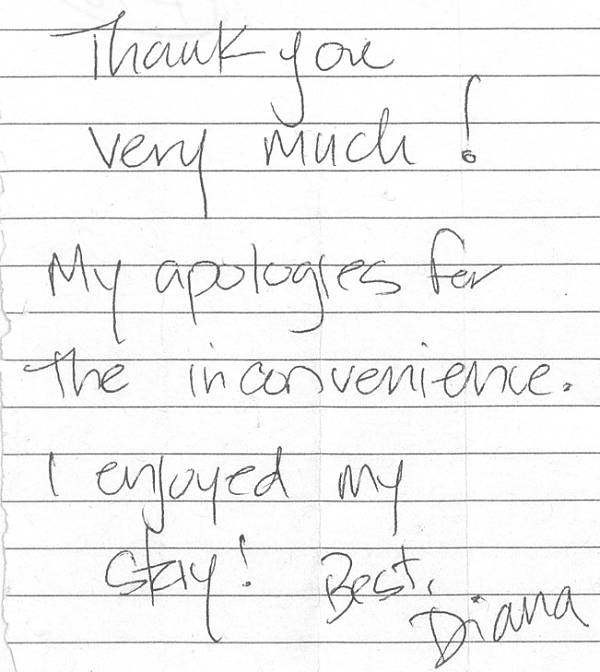 Thank you
very much!
My apologies for
the inconvenience.
I enjoyed my
stay! Best,
Diana